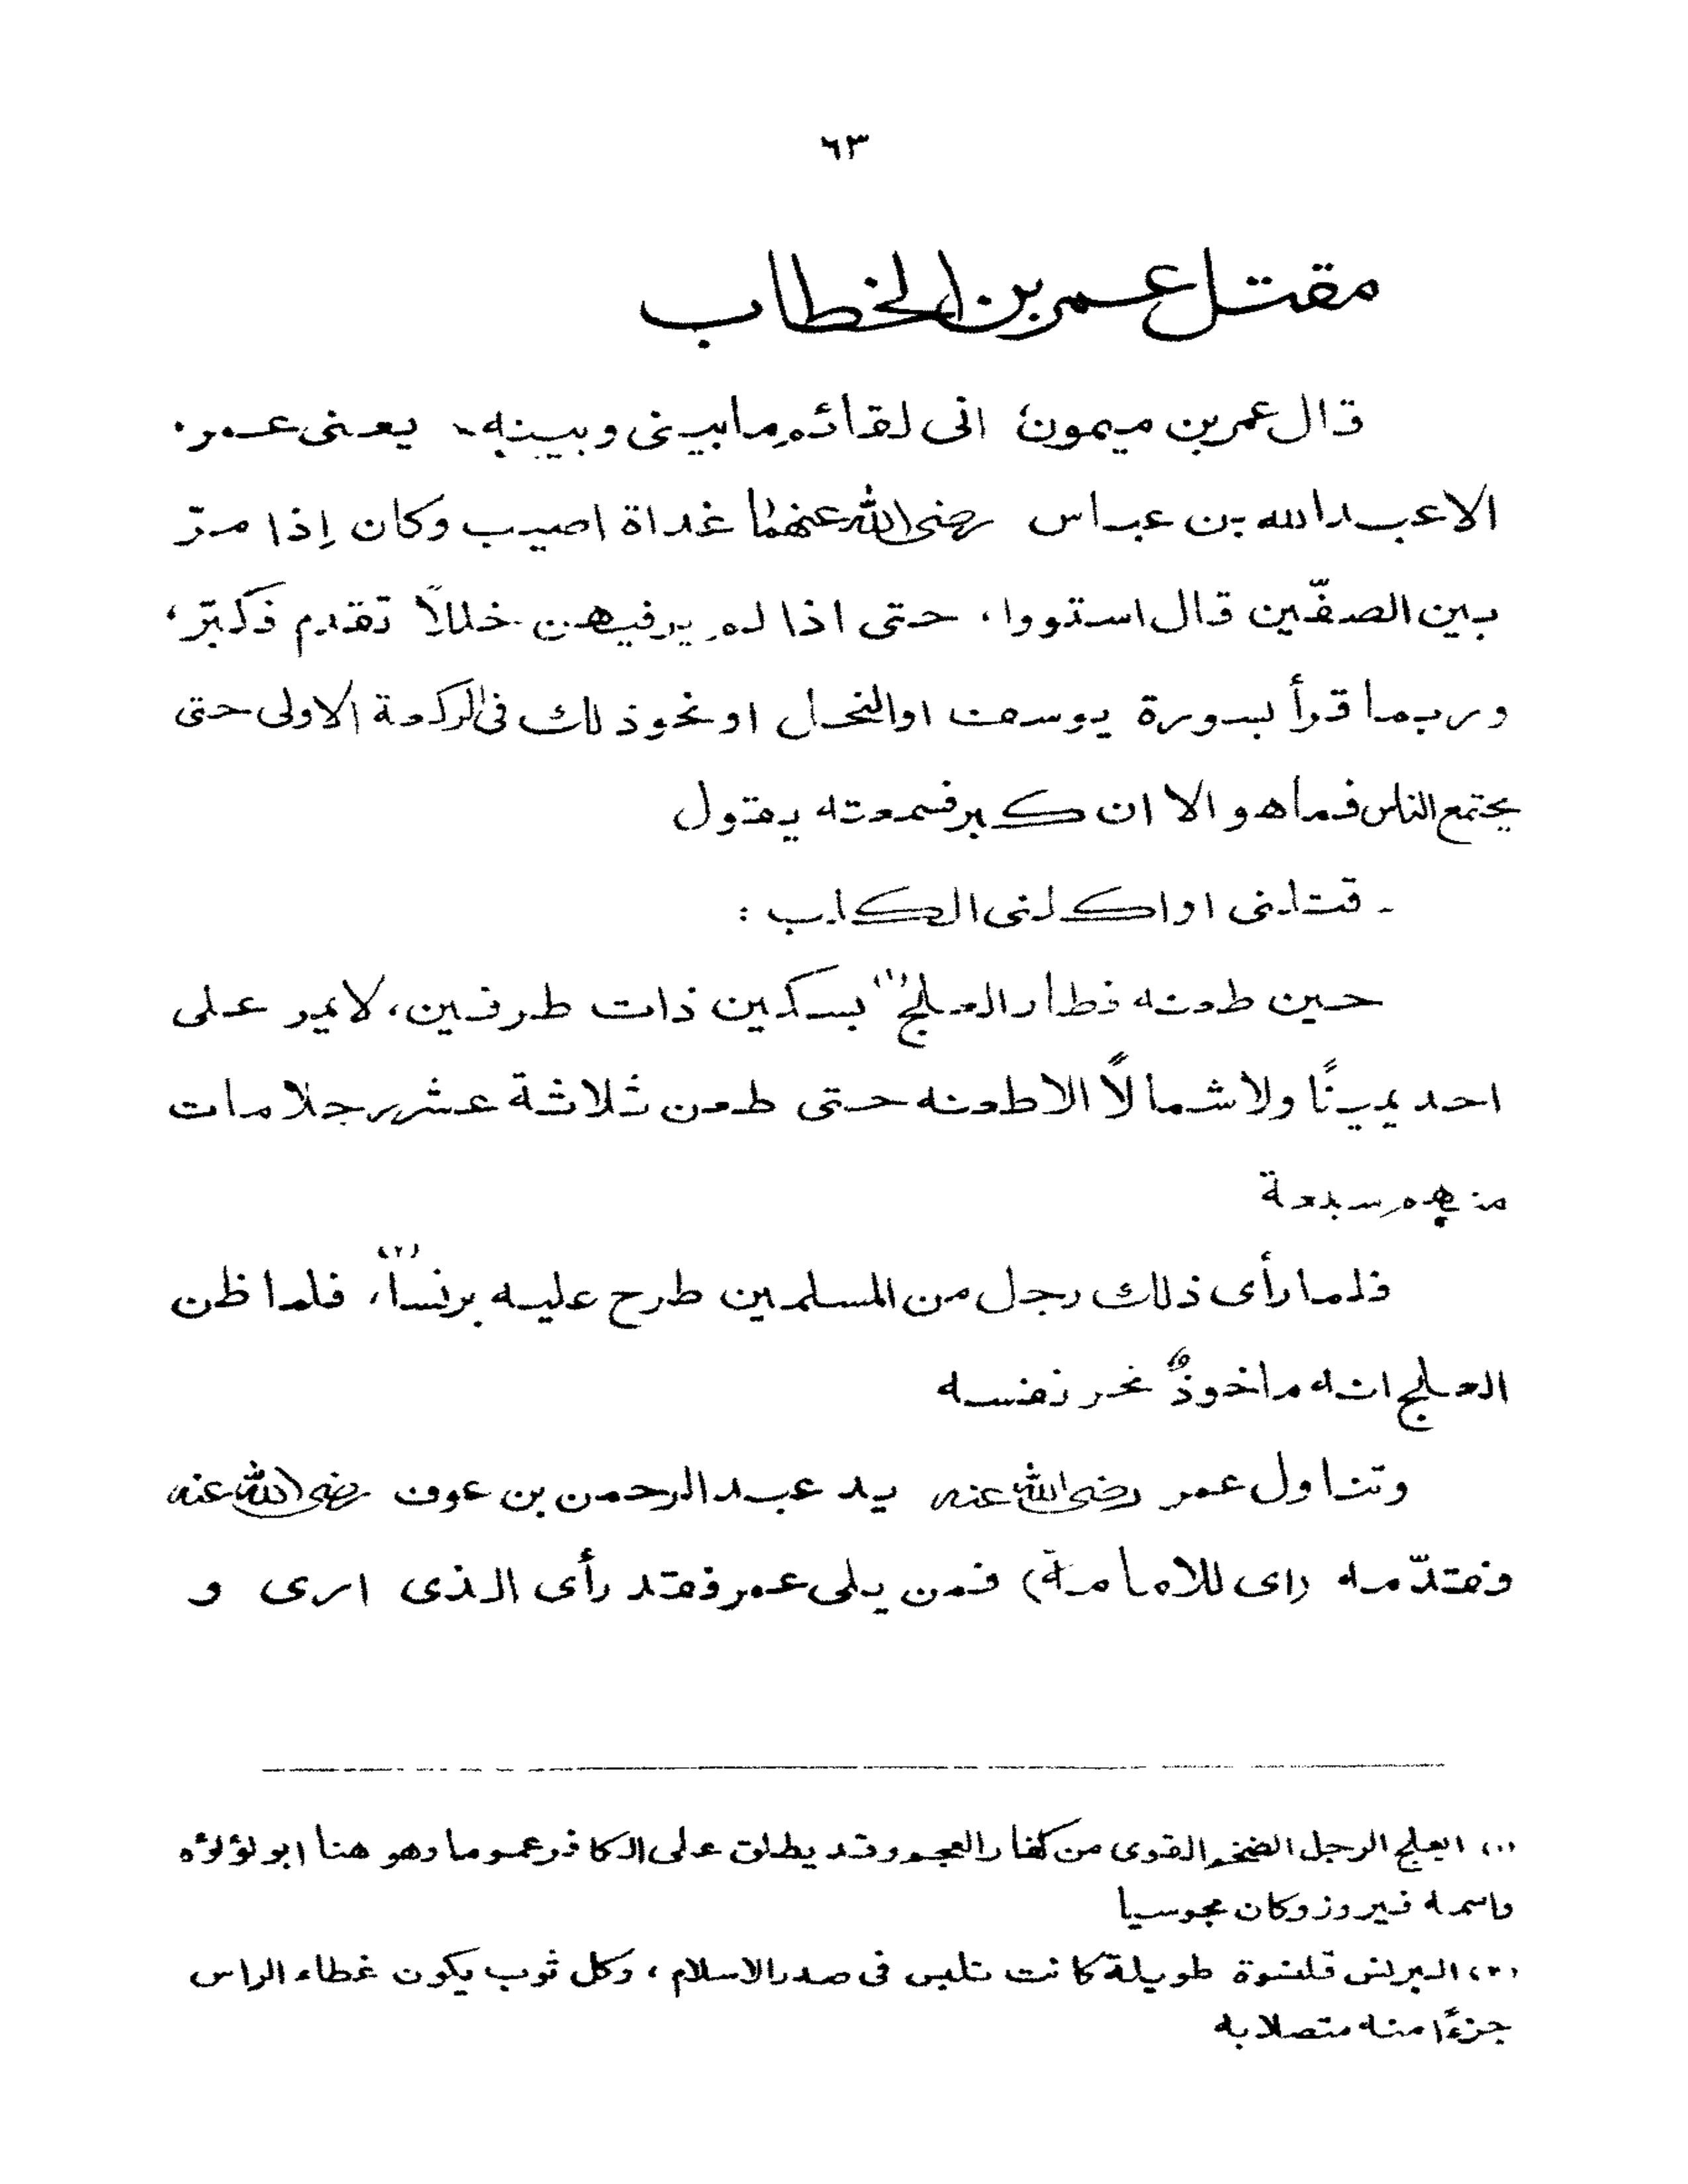 ٦٣
مقتل عمر بن الخطاب
قال عمر بن ميمون؛ انى لقائم ما بينى وبينه ـ يعنى عمر.
الا عبدالله بن عباس رضى الله عنهما غداة اصيب وكان إذا مرّ
بين الصفّين قال استووا، حتى اذا لم ير فيهن خللاً تقدم فكبّر،
وربما قرأ بسورة يوسف او النحل او نحو ذلك فى الركعة الاولى حتى
يجتمع الناس فما هو الا ان كبر فسمعته يقول
ـ قتلنى او اكلنى الكلب :
حين طعنه فطار العلج (١) بسكين ذات طرفين، لا يمر على
احد يمينًا ولا شمالاً الا طعنه حتى طعن ثلاثة عشر رجلا مات
منهم سبعة
فلما رأى ذلك رجل من المسلمين طرح عليه برنساً (٢)، فلما ظن
العلج انه ماخوذٌ نحر نفسه
وتناول عمر رضى الله عنه يد عبد الرحمن بن عوف رضى الله عنه
فقدّمه (اى للامامة) فمن يلى عمر فقد رأى الذى ارى و
(١) العلج الرجل الضخم القوى من كفار العجم وقد يطلق على الكافر عموما وهو هنا ابو لؤلؤه
واسمه فيروز وكان مجوسيا
(٢) البرنس قلنسوة طويلة كانت تلبس فى صدر الاسلام ، وكل ثوب يكون غطاء الراس
جزءًا منه متصلا به